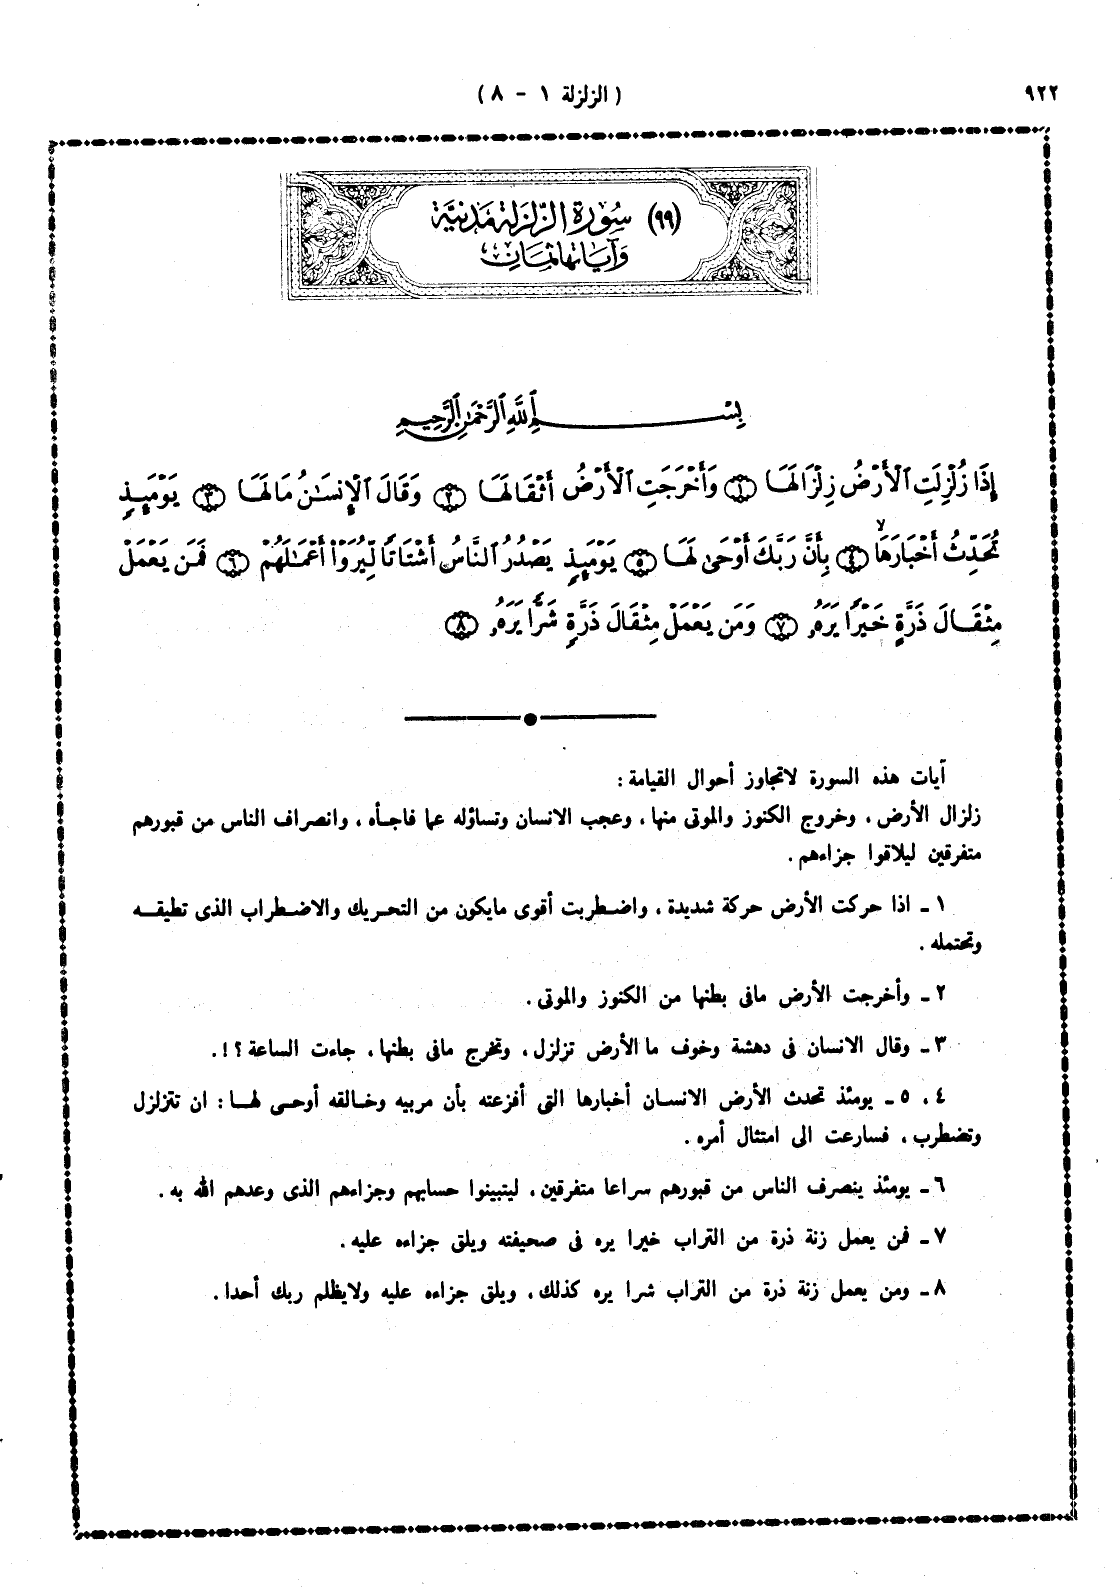 ٩٢٢
( الزلزلة ١ - ٨ )
(٩٩) سُورَةِ الزِّلزَلة مَدَنيَّة
وَآيَاتها ثمَان
بِسْمِ ٱللَّهِ ٱلرَّحْمَٰنِ ٱلرَّحِيمِ
إِذَا زُلْزِلَتِ ٱلْأَرْضُ زِلْزَالَهَا ١ وَأَخْرَجَتِ ٱلْأَرْضُ أَثْقَالَهَا ٢ وَقَالَ ٱلْإِنسَٰنُ مَا لَهَا ٣ يَوْمَئِذٍ
تُحَدِّثُ أَخْبَارَهَا ٤ بِأَنَّ رَبَّكَ أَوْحَىٰ لَهَا ٥ يَوْمَئِذٍ يَصْدُرُ ٱلنَّاسُ أَشْتَاتًا لِّيُرَوْا۟ أَعْمَٰلَهُمْ ٦ فَمَن يَعْمَلْ
مِثْقَالَ ذَرَّةٍ خَيْرًا يَرَهُۥ ٧ وَمَن يَعْمَلْ مِثْقَالَ ذَرَّةٍ شَرًّا يَرَهُۥ ٨
آيات هذه السورة لاتجاوز أحوال القيامة :
زلزال الأرض ، وخروج الكنوز والموتى منها ، وعجب الانسان وتساؤله عما فاجأه ، وانصراف الناس من قبورهم
متفرقين ليلاقوا جزاءهم .
١ ـ اذا حركت الأرض حركة شديدة ، واضطربت أقوى مايكون من التحريك والاضطراب الذى تطيقه
وتحتمله .
٢ ـ وأخرجت الأرض مافى بطنها من الكنوز والموتى .
٣ ـ وقال الانسان فى دهشة وخوف ما الأرض تزلزل ، وتخرج مافى بطنها ، جاءت الساعة ؟! .
٤ ، ٥ ـ يومئذ تحدث الأرض الانسان أخبارها التى أفزعته بأن مربيه وخالقه أوحى لها : ان تتزلزل
وتضطرب ، فسارعت الى امتثال أمره .
٦ ـ يومئذ ينصرف الناس من قبورهم سراعا متفرقين ، ليتبينوا حسابهم وجزاءهم الذى وعدهم الله به .
٧ ـ فمن يعمل زنة ذرة من التراب خيرا يره فى صحيفته ويلق جزاءه عليه .
٨ ـ ومن يعمل زنة ذرة من التراب شرا يره كذلك ، ويلق جزاءه عليه ولايظلم ربك أحدا .